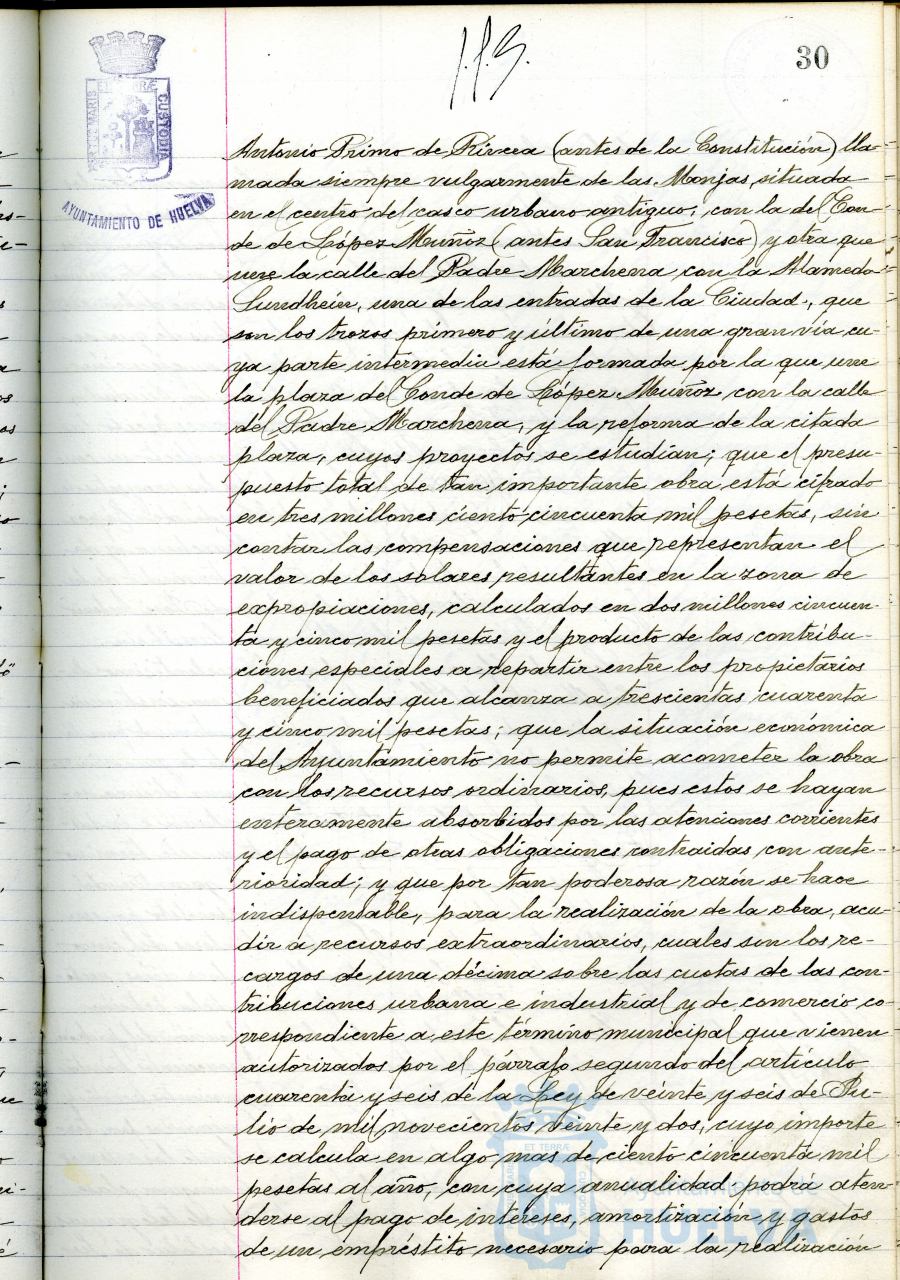 113.
30
PORTUS MARIS ET TERRÆ CUSTODIA
AYUNTAMIENTO DE HUELVA
Antonio Primo de Rivera (antes de la Constitución) lla-
mada siempre vulgarmente de las Monjas, situada
en el centro del casco urbano antiguo, con la del Con-
de de López Muñoz (antes San Francisco) y otra que
une la calle del Padre Marchena con la Alameda
Sundheim, una de las entradas de la Ciudad, que
son los trozos primero y último de una gran vía cu-
ya parte intermedia está formada por la que une
la plaza del Conde de López Muñoz con la calle
del Padre Marchena, y la reforma de la citada
plaza, cuyos proyectos se estudian; que el presu-
puesto total de tan importante obra está cifrado
en tres millones ciento cincuenta mil pesetas, sin
contar las compensaciones que representan el
valor de los solares resultantes en la zona de
expropiaciones, calculados en dos millones cincuen-
ta y cinco mil pesetas y el producto de las contribu-
ciones especiales a repartir entre los propietarios
beneficiados que alcanza a trescientas cuarenta
y cinco mil pesetas; que la situación económica
del Ayuntamiento no permite acometer la obra
con los recursos ordinarios, pues estos se hayan
enteramente absorbidos por las atenciones corrientes
y el pago de otras obligaciones contraidas con ante-
rioridad; y que por tan poderosa razón se hace
indispensable, para la realización de la obra, acu-
dir a recursos extraordinarios, cuales son los re-
cargos de una décima sobre las cuotas de las con-
tribuciones urbana e industrial y de comercio co-
rrespondiente a este término municipal que vienen
autorizados por el párrafo segundo del artículo
cuarenta y seis de la Ley de veinte y seis de Ju-
lio de mil novecientos veinte y dos, cuyo importe
se calcula en algo mas de ciento cincuenta mil
pesetas al año, con cuya anualidad podrá aten-
derse al pago de intereses, amortización y gastos
de un empréstito necesario para la realización
Ayuntamiento de
HUELVA